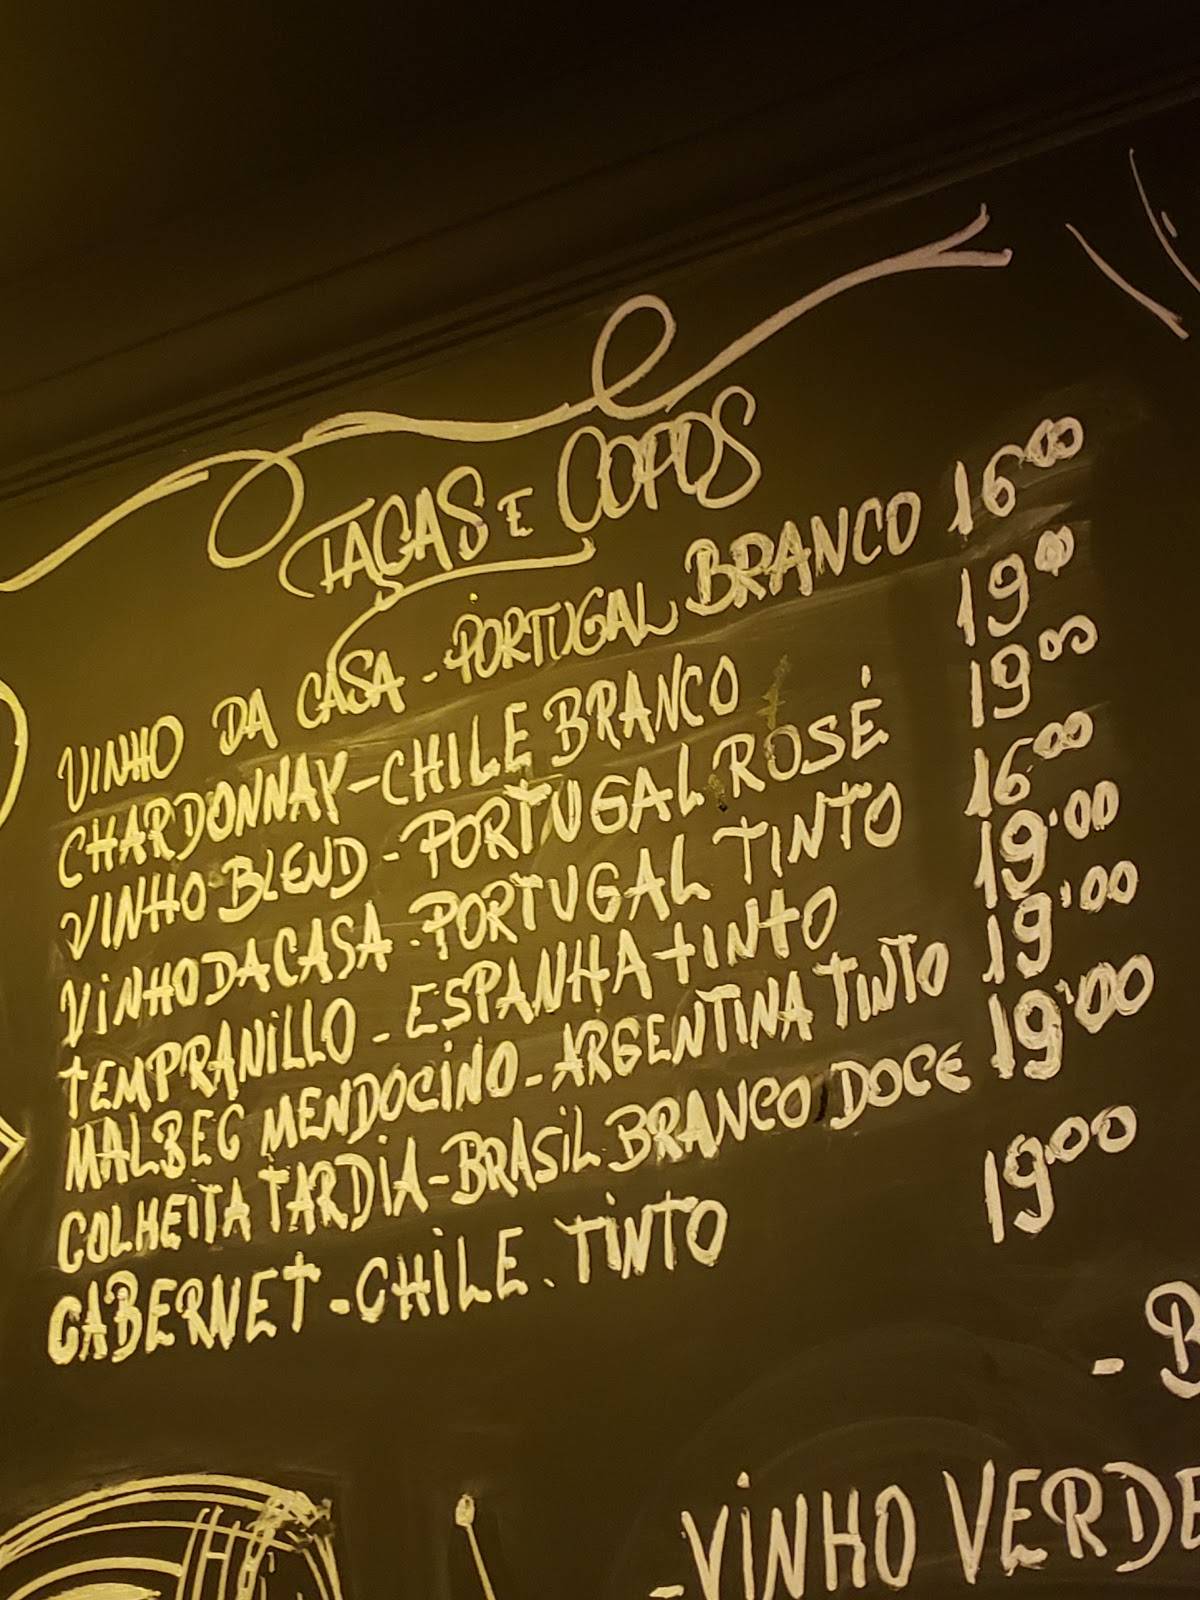 TAÇAS E COPOS
VINHO DA CASA - PORTUGAL BRANCO 1600
CHARDONNAY - CHILE BRANCO 1900
VINHO BLEND - PORTUGAL ROSÉ 1900
VINHO DA CASA - PORTUGAL TINTO 1600
TEMPRANILLO - ESPANHA TINTO 19.00
MALBEC MENDOCINO - ARGENTINA TINTO 19.00
COLHEITA TARDIA - BRASIL BRANCO DOCE 19.00
CABERNET - CHILE. TINTO 19.00
- B
- VINHO VERDE